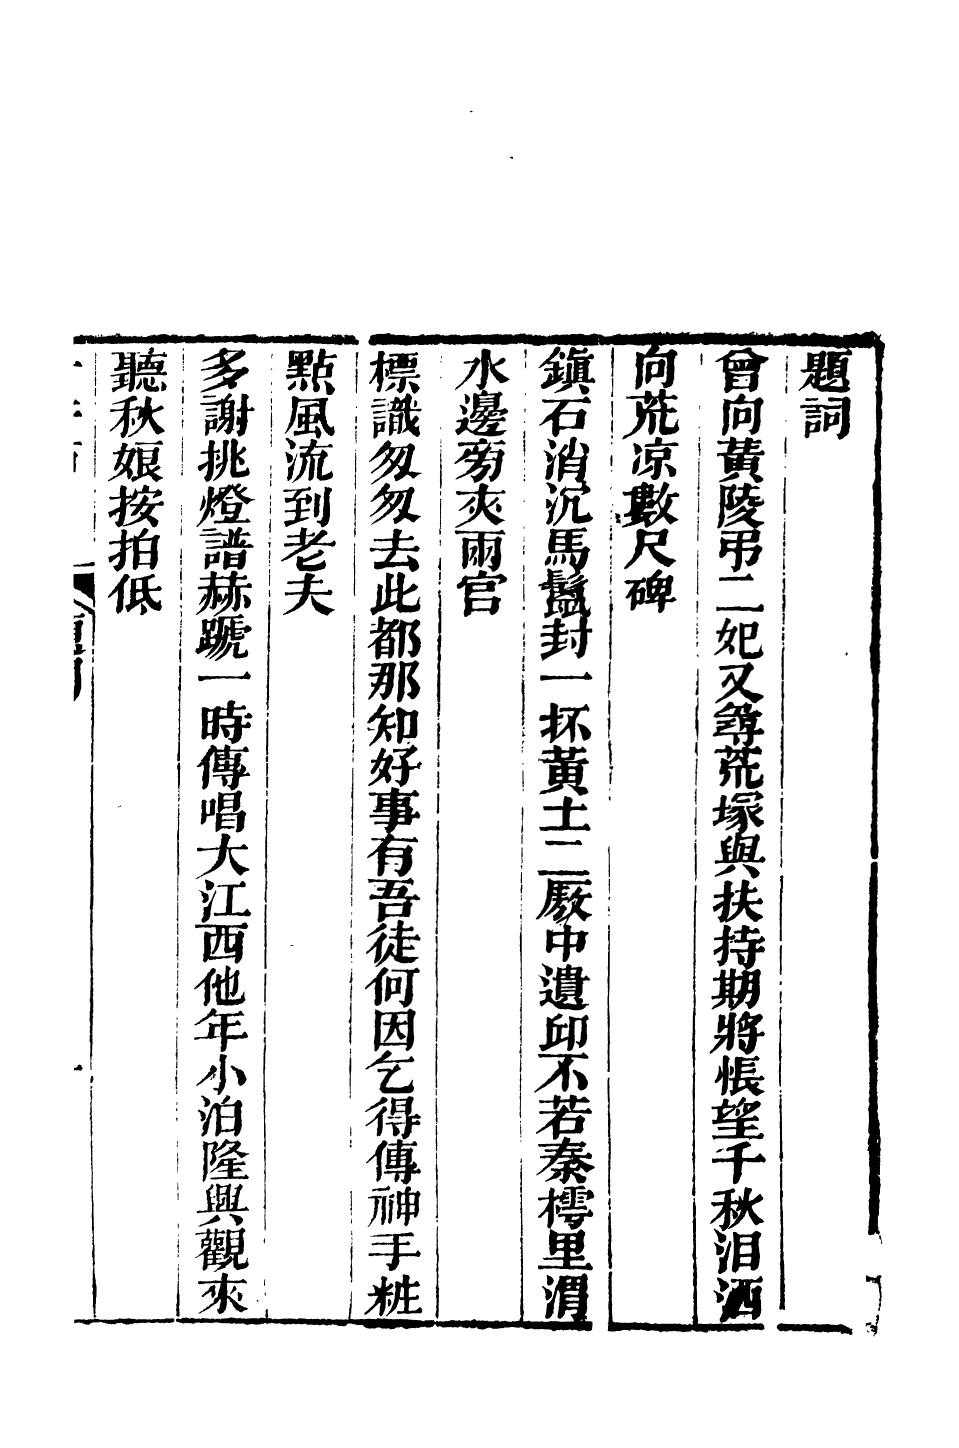 題詞
曾向黃陵弔二妃又尋荒塚與扶持期將悵望千秋泪洒
向荒凉數尺碑
鎮石消沉馬鬛封一抔黃土二厫中遺印不若秦樗里渭
水邊旁夾兩官
標識匆匆去此都那知好事有吾徒何因乞得傳神手粧
點風流到老夫
多謝挑燈譜赫蹏一時傳唱大江西他年小泊隆興觀來
聽秋娘按拍低